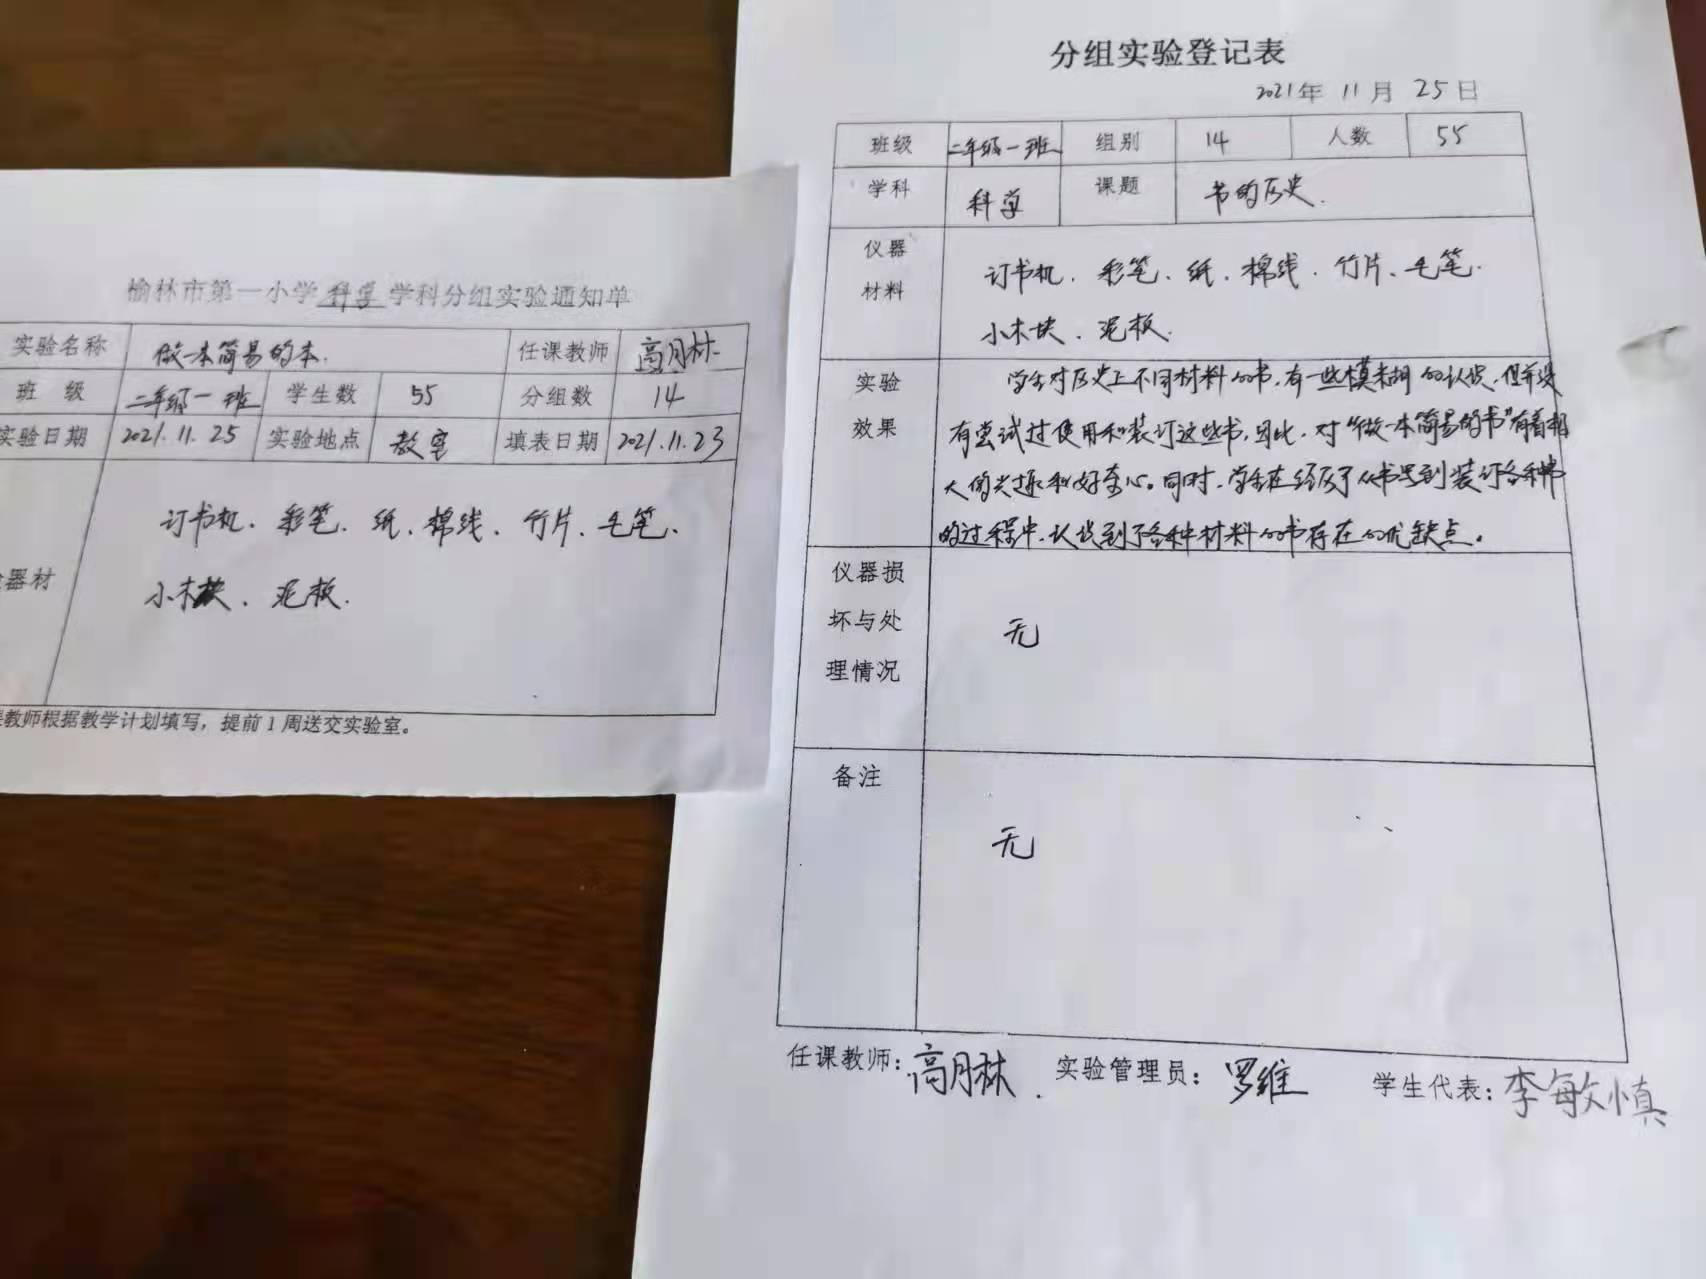 榆林市第一小学科学学科分组实验通知单
实验名称 做一本简易的本. 任课教师 高月林
班 级 二年级一班 学生数 55 分组数 14
实验日期 2021.11.25 实验地点 教室 填表日期 2021.11.23
订书机、彩笔、纸、棉线、竹片、毛笔、
器材
小木块、泥板.
教师根据教学计划填写，提前1周送交实验室。
分组实验登记表
2021年 11月 25日
班级 二年级一班 组别 14 人数 55
学科 科学 课题 书的历史.
仪器 订书机、彩笔、纸、棉线、竹片、毛笔.
材料 小木块、泥板.
实验 学生对历史上不同材料的书,有一些模糊的认识,但并没
效果 有尝试过使用和装订这些书,因此,对“做一本简易的书”有着相
大的兴趣和好奇心。同时,学生在经历了从书写到装订各种书
的过程中,认识到了各种材料的书存在的优缺点。
仪器损
坏与处 无
理情况
备注
无
任课教师：高月林. 实验管理员：罗维 学生代表：李敏慎